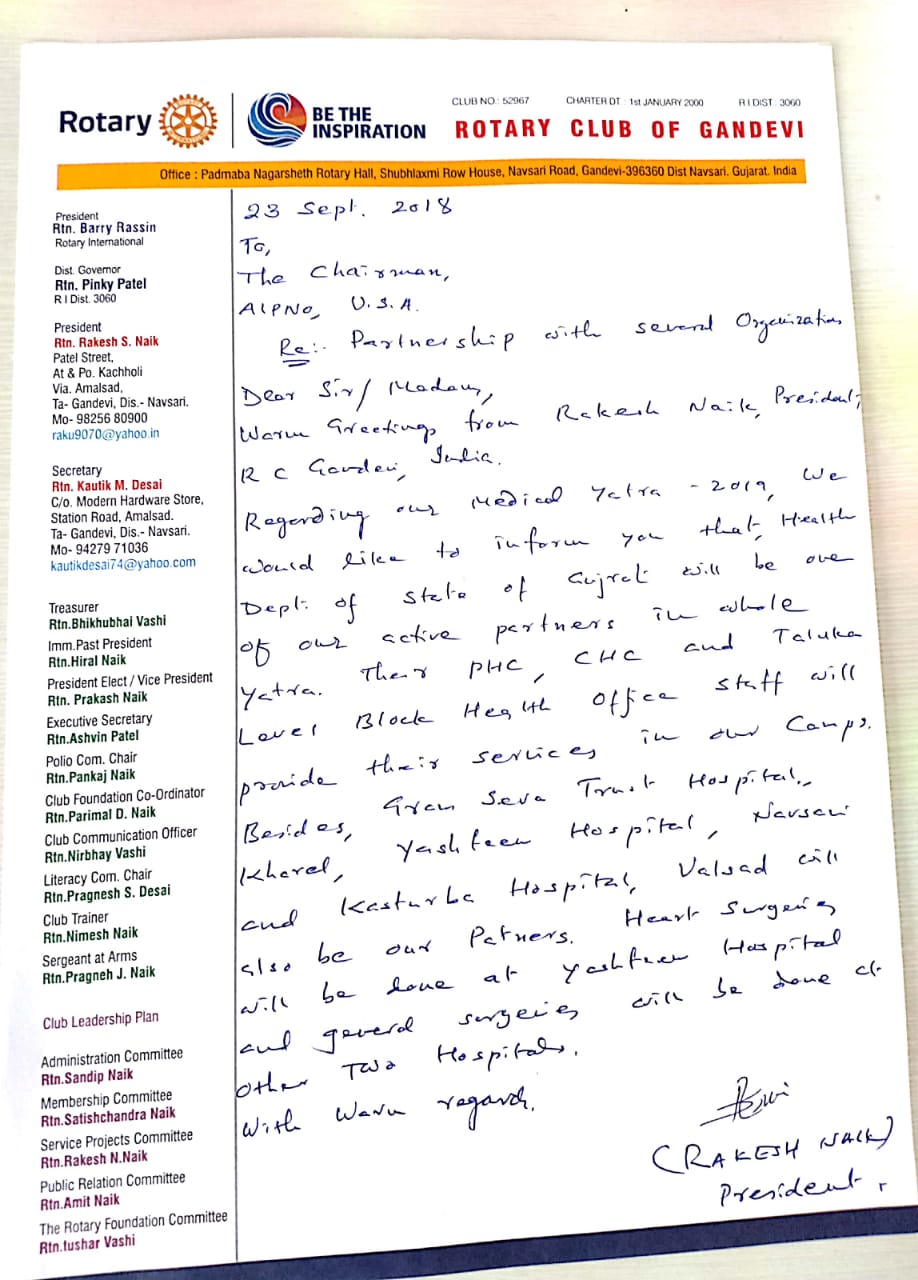 Rotary
BE THE
INSPIRATION
CLUB NO.: 52967 CHARTER DT.: 1st JANUARY 2000 R I DIST.: 3060
ROTARY CLUB OF GANDEVI
Office : Padmaba Nagarsheth Rotary Hall, Shubhlaxmi Row House, Navsari Road, Gandevi-396360 Dist Navsari. Gujarat. India
President
Rtn. Barry Rassin
Rotary International
Dist. Governor
Rtn. Pinky Patel
R I Dist. 3060
President
Rtn. Rakesh S. Naik
Patel Street,
At & Po. Kachholi
Via. Amalsad,
Ta- Gandevi, Dis.- Navsari.
Mo- 98256 80900
raku9070@yahoo.in
Secretary
Rtn. Kautik M. Desai
C/o. Modern Hardware Store,
Station Road, Amalsad.
Ta- Gandevi, Dis.- Navsari.
Mo- 94279 71036
kautikdesai74@yahoo.com
Treasurer
Rtn.Bhikhubhai Vashi
Imm.Past President
Rtn.Hiral Naik
President Elect / Vice President
Rtn. Prakash Naik
Executive Secretary
Rtn.Ashvin Patel
Polio Com. Chair
Rtn.Pankaj Naik
Club Foundation Co-Ordinator
Rtn.Parimal D. Naik
Club Communication Officer
Rtn.Nirbhay Vashi
Literacy Com. Chair
Rtn.Pragnesh S. Desai
Club Trainer
Rtn.Nimesh Naik
Sergeant at Arms
Rtn.Pragneh J. Naik
Club Leadership Plan
Administration Committee
Rtn.Sandip Naik
Membership Committee
Rtn.Satishchandra Naik
Service Projects Committee
Rtn.Rakesh N.Naik
Public Relation Committee
Rtn.Amit Naik
The Rotary Foundation Committee
Rtn.tushar Vashi
23 Sept. 2018
To,
The Chairman,
AIPNO, U.S.A.
Re:- Partnership with several Organization
Dear Sir/ Madam,
Warm Greetings from Rakesh Naik, President,
R C Gandevi, India.
Regarding our Medical Yatra - 2019, We
would like to inform you that, Health
Dept. of State of Gujrat will be one
of our active partners in whole
Yatra. Their PHC, CHC and Taluka
Level Block Health Office staff will
provide their services in our Camps.
Besides, Gram Seva Trust Hospital,
Kharel, Yashfeen Hospital, Navsari
and Kasturba Hospital, Valsad will
also be our Patners. Heart Surgeries
will be done at Yashfeen Hospital
and general surgeries will be done at
other Two Hospitals.
With Warm regards.
(RAKESH NAIK)
President.